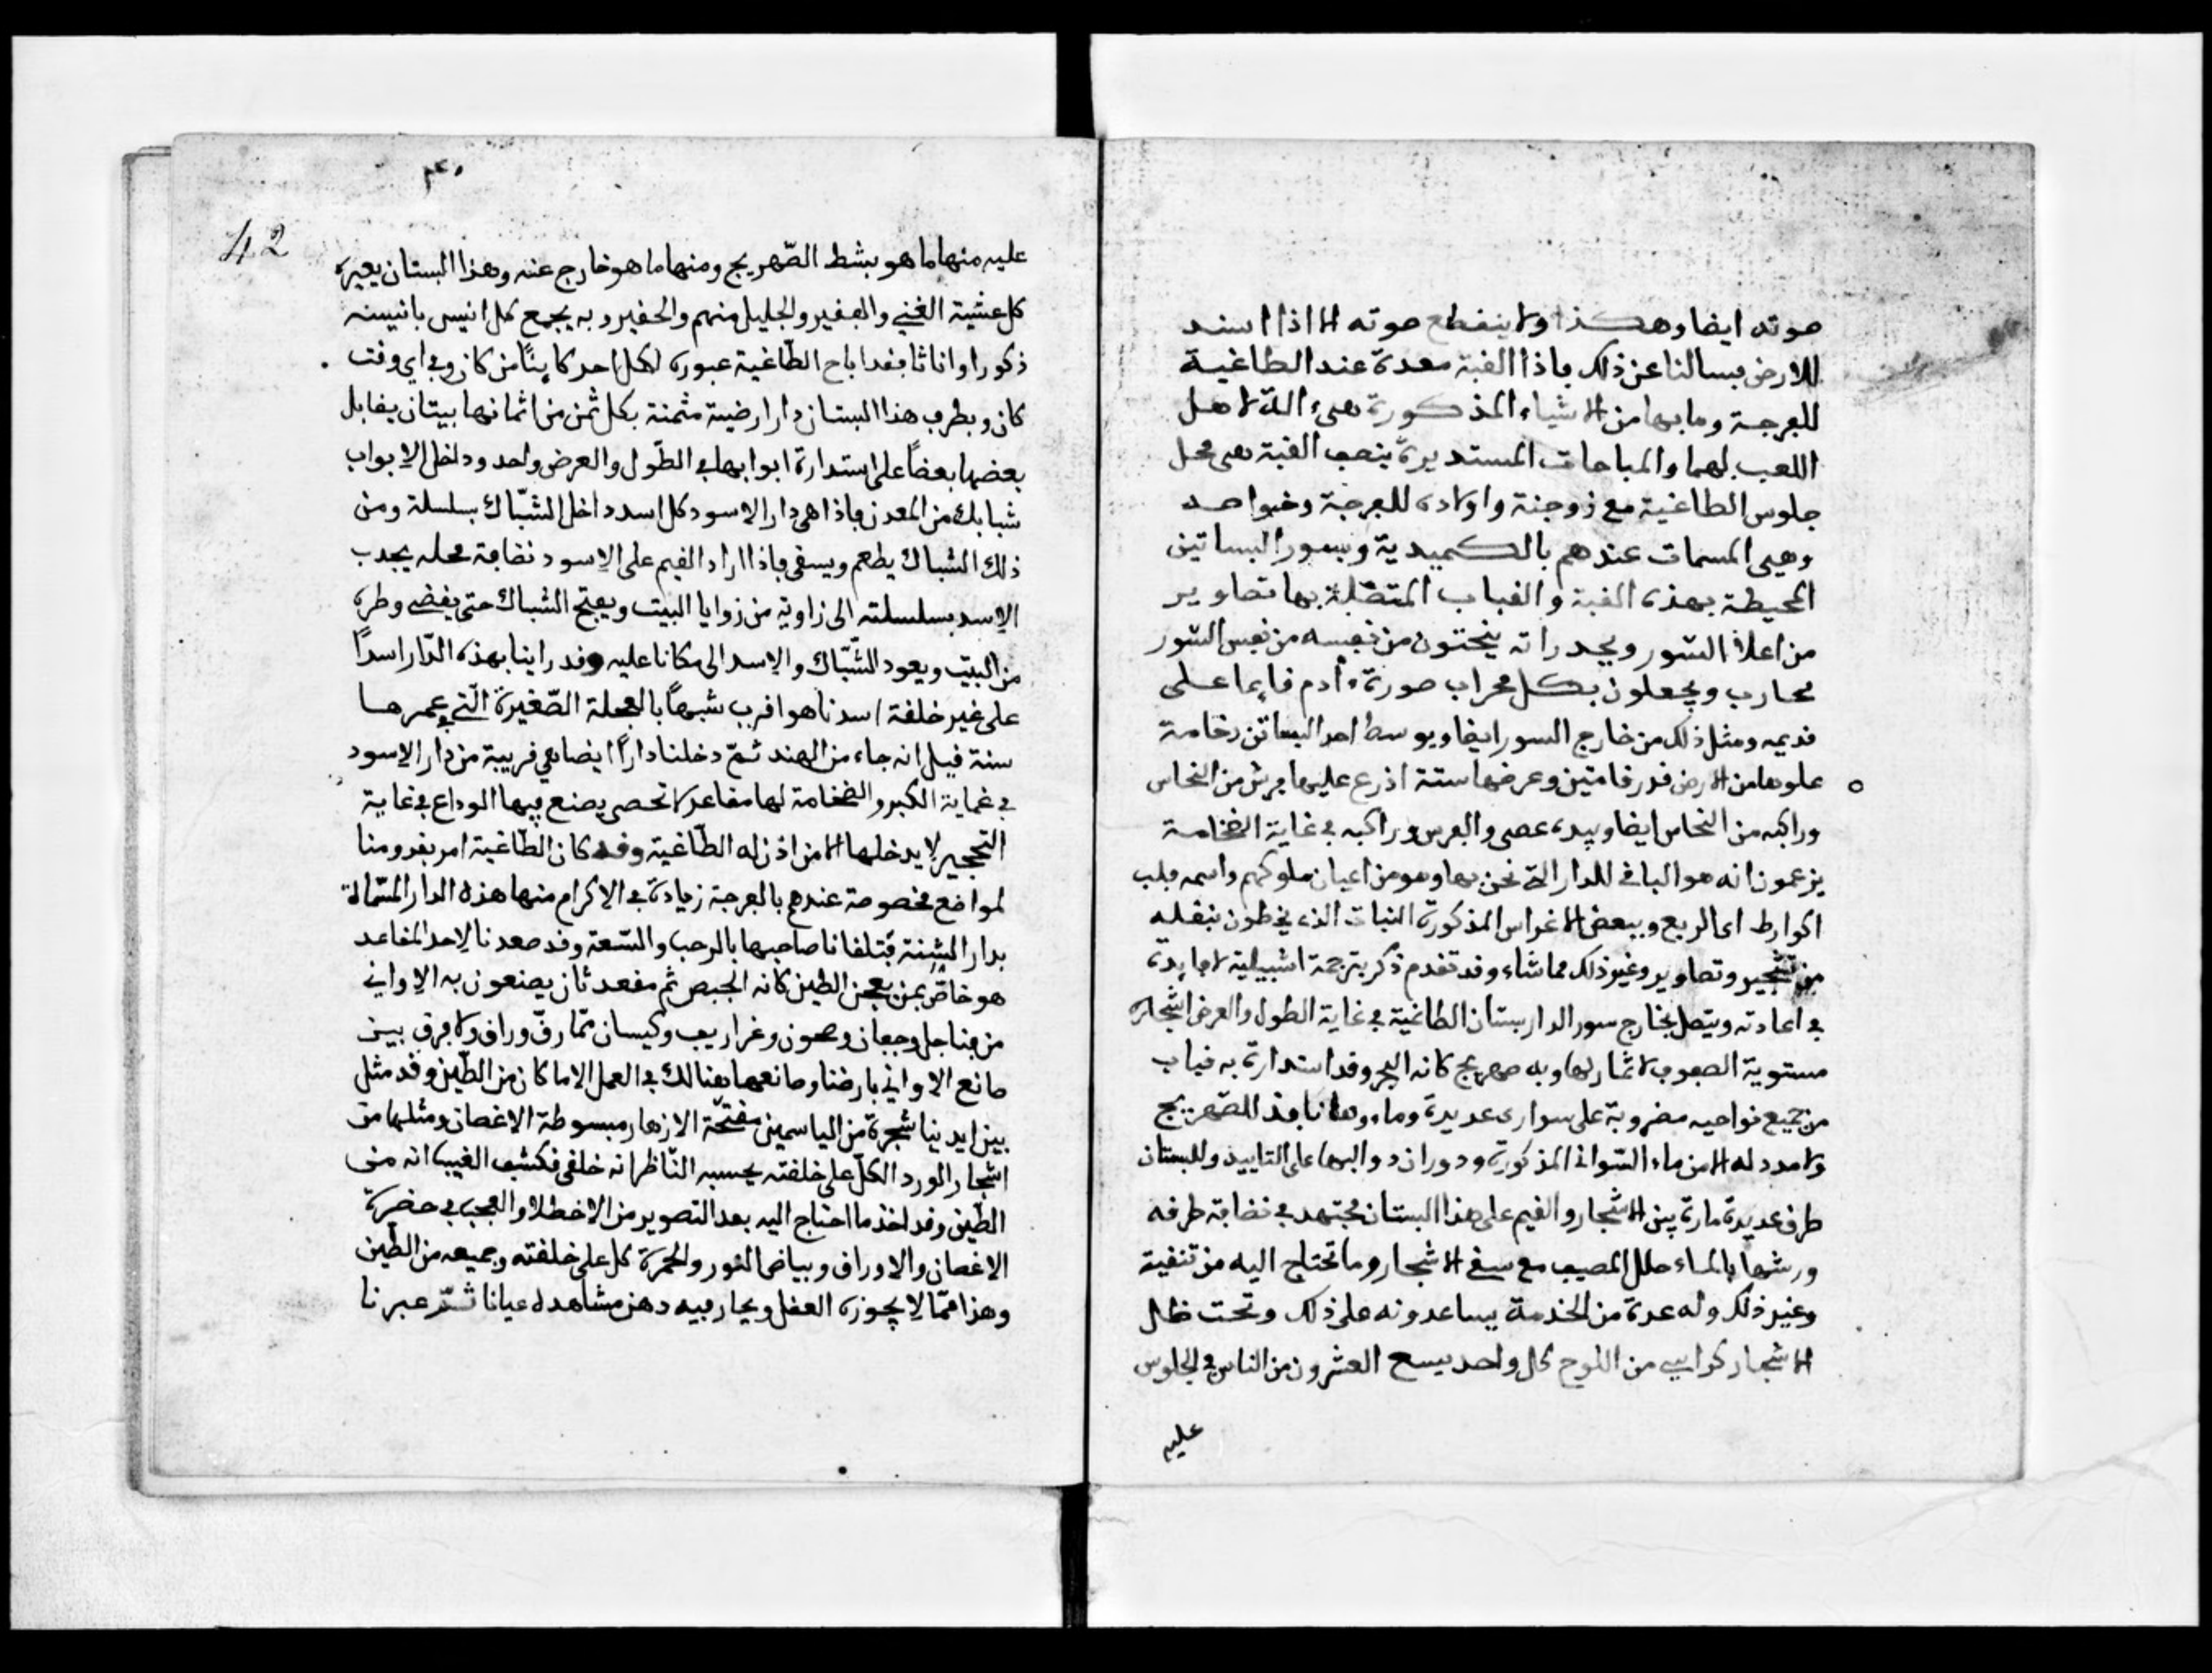 صوته ايضا وهكذا ولا ينقطع صوته الا اذا اسند
للارض فسالنا عن ذلك فاذا القبة معدة عند الطاغية
للفرجة وما بها من الاشياء المذكورة هي الة لاهل
اللعب لهما والمباحات المستديرة بنصف القبة هي محل
جلوس الطاغية مع زوجته واولاده للفرجة وخواصه
وهي المسمات عندهم بالكميدية وبسور البساتين
المحيطة بهذه القبة والقباب المتصلة بها تصاوير
من اعلا السور وبجدراته ينحتون من نفسه من نفس السور
محارب ويجعلون بكل محراب صورة ءادم قايما على
قديمه ومثل ذلك من خارج السور ايضا وبوسط احد البساتن رخامة
علوها من الارض قدر قامتين وعرضها ستة اذرع عليها فرس من النحاس
وراكبه من النحاس ايضا وبيده عصى والفرس وراكبه في غاية الضخامة
يزعمون انه هو الباني للدار التي نحن بها وهو من اعيان ملوكهم واسمه فلب
اكوارط اي الربع وببعض الاغراس المذكورة النبات الذي يخطون بنقله
من تشجير وتصاوير وغير ذلك مما شاء وقد تقدم ذكر بترجمة اشبيلية لا فايدة
في اعادته ويتصل بخارج سور الدار بستان الطاغية في غاية الطول والعرض اشجاره
مستوية الصفوف لا ثمار لها وبه صهريج كانه البحر وقد استدارة به قباب
من جميع نواحيه مضروبة على سواري عديدة وماءوها نافذ للصهريج
ولا مدد له الا من ماء السواني المذكورة ودوران دوالبها على التاييد وللبستان
طرق عديدة مارة بين الاشجار والقيم على هذا البستان مجتهد في نضافة طرقه
ورشها بالماء خلال المصيف مع سقي الاشجار وما تحتاج اليه من تنقية
وغير ذلك وله عدة من الخدمة يساعدونه على ذلك وتحت ظل
الاشجار كراسي من اللوح كل واحد يسع العشرون من الناس في الجلوس
عليه
42
عليه منها ما هو بشط الصّهريج ومنها ما هو خارج عنه وهذا البستان يعبره
كل عشية الغني والفقير والجليل منهم والحقير وبه يجمع كل انيس بانيسه
ذكورا واناثا فقد اباح الطّاغية عبوره لكل احد كاينًا من كان وفي اي وقت
كان وبطرف هذا البستان دار ارضية مثمنة بكل ثمن من اثمانها بيتان يقابل
بعضها بعضاً على استدارة ابوابها في الطّول والعرض واحد وداخل الابواب
شبابك من المعدن فاذا هي دار الاسود كل اسد داخل الشبّاك بسلسلة ومن
ذلك الشباك يطعم ويسقى فاذا اراد القيم على الاسود نضافة محله يجدب
الاسد بسلسلته الى زاوية من زوايا البيت ويفتح الشباك حتى يقضي وطره
من البيت ويعود الشبّاك والاسد الى مكانا عليه وقد راينا بهذه الدّار اسداً
على غير خلقة اسدنا هو اقرب شبهاً بالعجلة الصّغيرة الّتي عمرها
سنة قيل انه جاء من الهند ثمّ دخلنا داراً ايضا هي قريبة من دار الاسود
في غماية الكبر والضخامة لها مقاعد لا تحصى يصنع فيها الوداع في غاية
التحجير لا يدخلها الا من اذن له الطّاغية وقد كان الطّاغية امر بقدومنا
لمواضع مخصوصة عندهم بالفرجة زيادة في الاكرام منها هذه الدار المسّماة
بدار الشنة فتلقانا صاحبها بالرحب والسّعة وقد صعدنا لاحد المقاعد
هو خاصّ بمن يعجن الطين كانه الجبص ثم مقعد ثان يصنعون به الاواني
من فناجل وجفان وصحون وغراريف وكيسان ممّا رقّ وراق ولا فرق بين
صانع الاواني بارضنا وصانعها هنالك في العمل الا ما كان من الطّين وقد مثل
بين ايدينا شجرة من الياسمين مفتحّة الازهار مبسوطة الاغصان ومثلها من
اشجار الورد الكلّ على خلقته يحسبه النّاظر انه خلقي فكشف الغيب انه من
الطّين وقد اخذ ما احتاج اليه بعد التصوير من الاخطلا والعجب في حضرة
الاغصان والاوراق وبياض النور والحمرة كل على خلقته وجميعه من الطّين
وهذا ممّا لا يجوزه العقل ويحار فيه دهن مشاهده عيانا ثمّ عبرنا